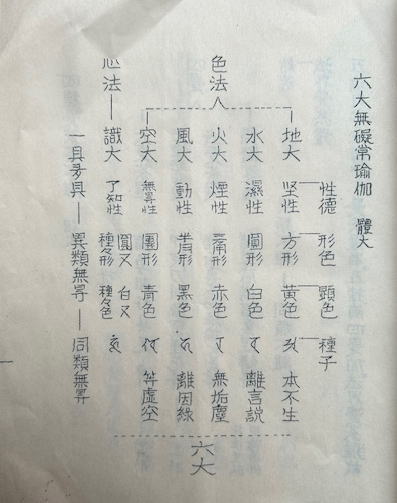 六大無礙常瑜伽 體大
性德 形色 顕色 種子
色法
地大 坚性 方形 黄色 本不生
水大 濕性 圓形 白色 離言説
火大 煙性 形 赤色 無垢塵
風大 動性 形 黒色 離因縁
空大 無㝵性 團形 青色 虚空
六大
心法 識大 了知性 圓又種々形 白又種々色
一具多具 異類無㝵 同類無㝵